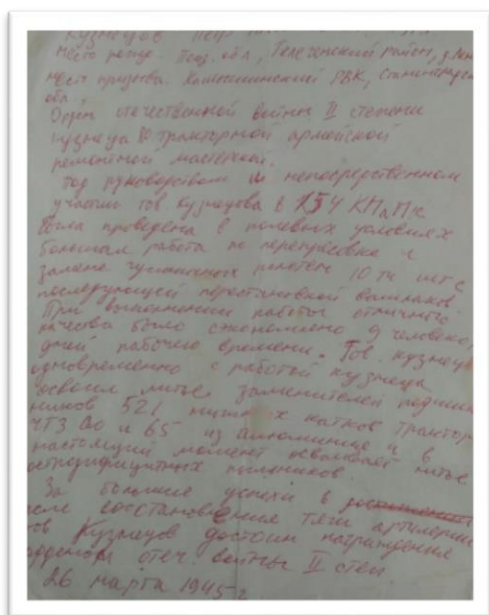 Кузнецов Пётр
место рожд. Пенз. обл., Телегинский район, д.
место призыва. Камышинский РВК, Сталинградск
обл.,
Орден отечественной войны II степени
кузнеца 80 тракторной армейской
ремонтной мастерской.
Под руководством и непосредственном
участии тов. Кузнецова в
была проведена в полевых условиях
большая работа по перепрессовке и
замене гусеничных 10 ти
последующей перестановкой башмаков
При выполнении работы отличного
качества было сэкономлено 9 человеко
дней рабочего времени. Тов. Кузнецов
одновременно с работой кузнеца
освоил литье заменителей подшип
ников 521 катков трактор
ЧТЗ 60 и 65 из алюминия и в
настоящий момент осваивает литье
остродифицитных
За большие успехи в
деле восстановления тяги артилерии
тов Кузнецов достоин награждения
орденом отеч. войны II степ
26 марта 1945 г